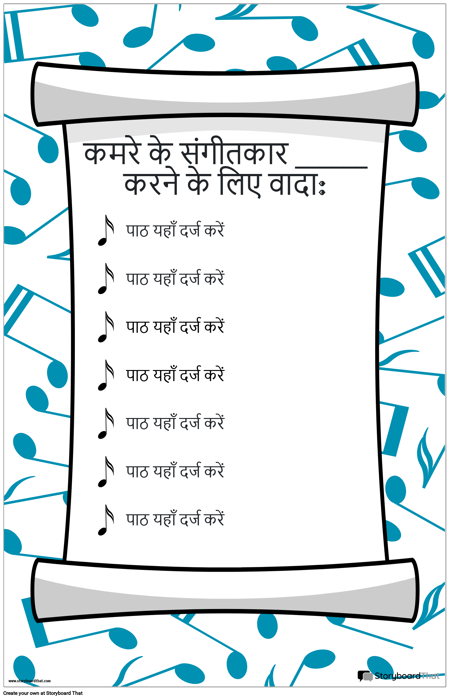 कमरे के संगीतकार _____
करने के लिए वादा:
पाठ यहाँ दर्ज करें
पाठ यहाँ दर्ज करें
पाठ यहाँ दर्ज करें
पाठ यहाँ दर्ज करें
पाठ यहाँ दर्ज करें
पाठ यहाँ दर्ज करें
पाठ यहाँ दर्ज करें
www.storyboardthat.com
StoryboardThat
Create your own at Storyboard That